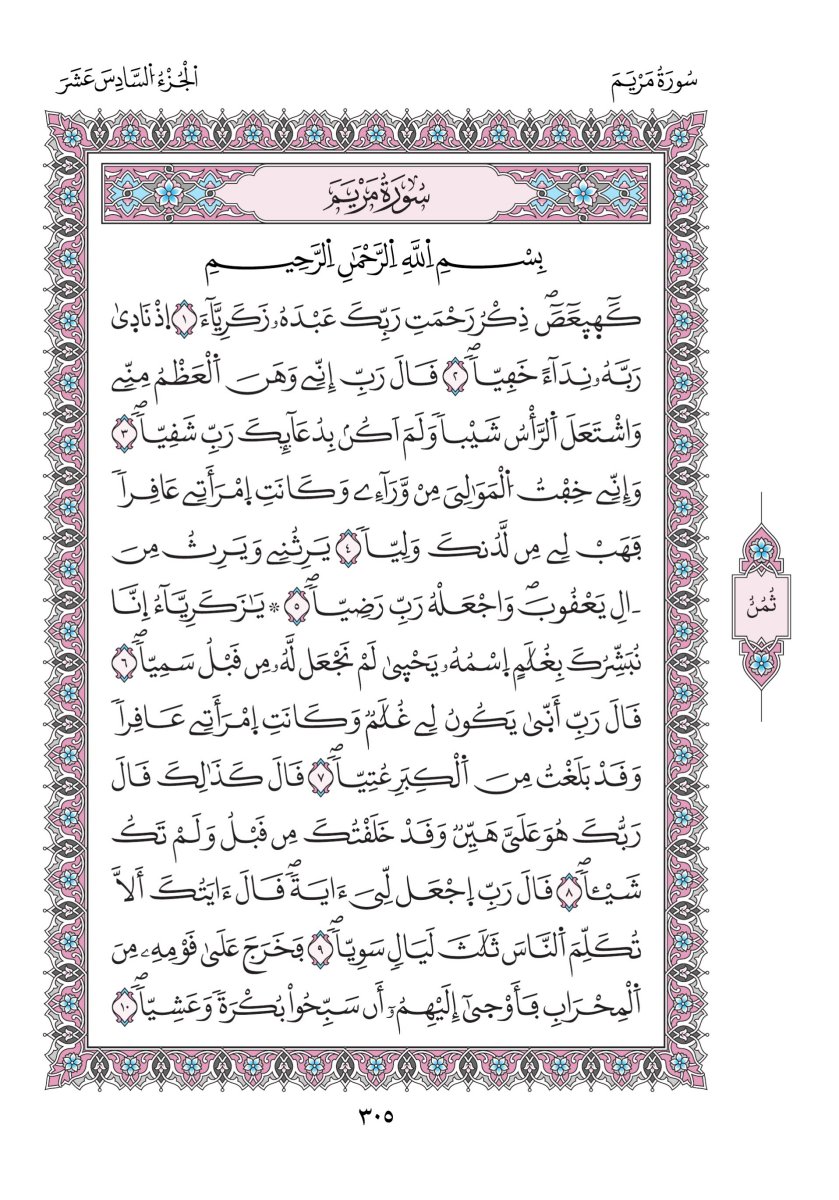 سُورَةُ مَرْيَمَ
اَلْجُزْءُ السَّادِسَ عَشَرَ
سُورَةُ مَرْيَمَ
بِسْمِ اِللَّهِ اِلرَّحْمَٰنِ اِلرَّحِيمِ
كٓهٓيعٓصٓۖ ذِكْرُ رَحْمَتِ رَبِّكَ عَبْدَهُۥ زَكَرِيَّآءَ ١ اِذْ نَادٜىٰ
رَبَّهُۥ نِدَآءً خَفِيّاٗۖ ٢ قَالَ رَبِّ إِنِّے وَهَنَ اَ۬لْعَظْمُ مِنِّے
وَاشْتَعَلَ اَ۬لرَّأْسُ شَيْباٗ وَلَمَ اَكُنۢ بِدُعَآئِكَ رَبِّ شَقِيّاٗۖ ٣
وَإِنِّے خِفْتُ اُ۬لْمَوَٰلِيَ مِنْ وَّرَآءِے وَكَانَتِ اِ۪مْرَأَتِے عَاقِراٗ
فَهَبْ لِے مِن لَّدُنكَ وَلِيّاٗ ٤ يَرِثُنِے وَيَرِثُ مِنَ
اٰلِ يَعْقُوبَۖ وَاجْعَلْهُ رَبِّ رَضِيّاٗۖ ٥ ۞ يَٰزَكَرِيَّآءُ اِ۪نَّا
نُبَشِّرُكَ بِغُلَٰمٍ اِ۪سْمُهُۥ يَحْيٜىٰ لَمْ نَجْعَل لَّهُۥ مِن قَبْلُ سَمِيّاٗۖ ٦
قَالَ رَبِّ أَنّٜىٰ يَكُونُ لِے غُلَٰمٞ وَكَانَتِ اِ۪مْرَأَتِے عَاقِراٗ
وَقَدْ بَلَغْتُ مِنَ اَ۬لْكِبَرِ عُتِيّاٗۖ ٧ قَالَ كَذَٰلِكَ قَالَ
رَبُّكَ هُوَ عَلَيَّ هَيِّنٞ وَقَدْ خَلَقْتُكَ مِن قَبْلُ وَلَمْ تَكُ
شَيْـٔاٗۖ ٨ قَالَ رَبِّ اِ۪جْعَل لِّيَ ءَايَةٗۖ قَالَ ءَايَتُكَ أَلَّا
تُكَلِّمَ اَ۬لنَّاسَ ثَلَٰثَ لَيَالٖ سَوِيّاٗۖ ٩ فَخَرَجَ عَلَىٰ قَوْمِهِۦ مِنَ
اَ۬لْمِحْرَابِ فَأَوْحٜىٰٓ إِلَيْهِمُۥٓ أَن سَبِّحُواْ بُكْرَةٗ وَعَشِيّاٗۖ ١٠
ثُمُنُ
٣٠٥